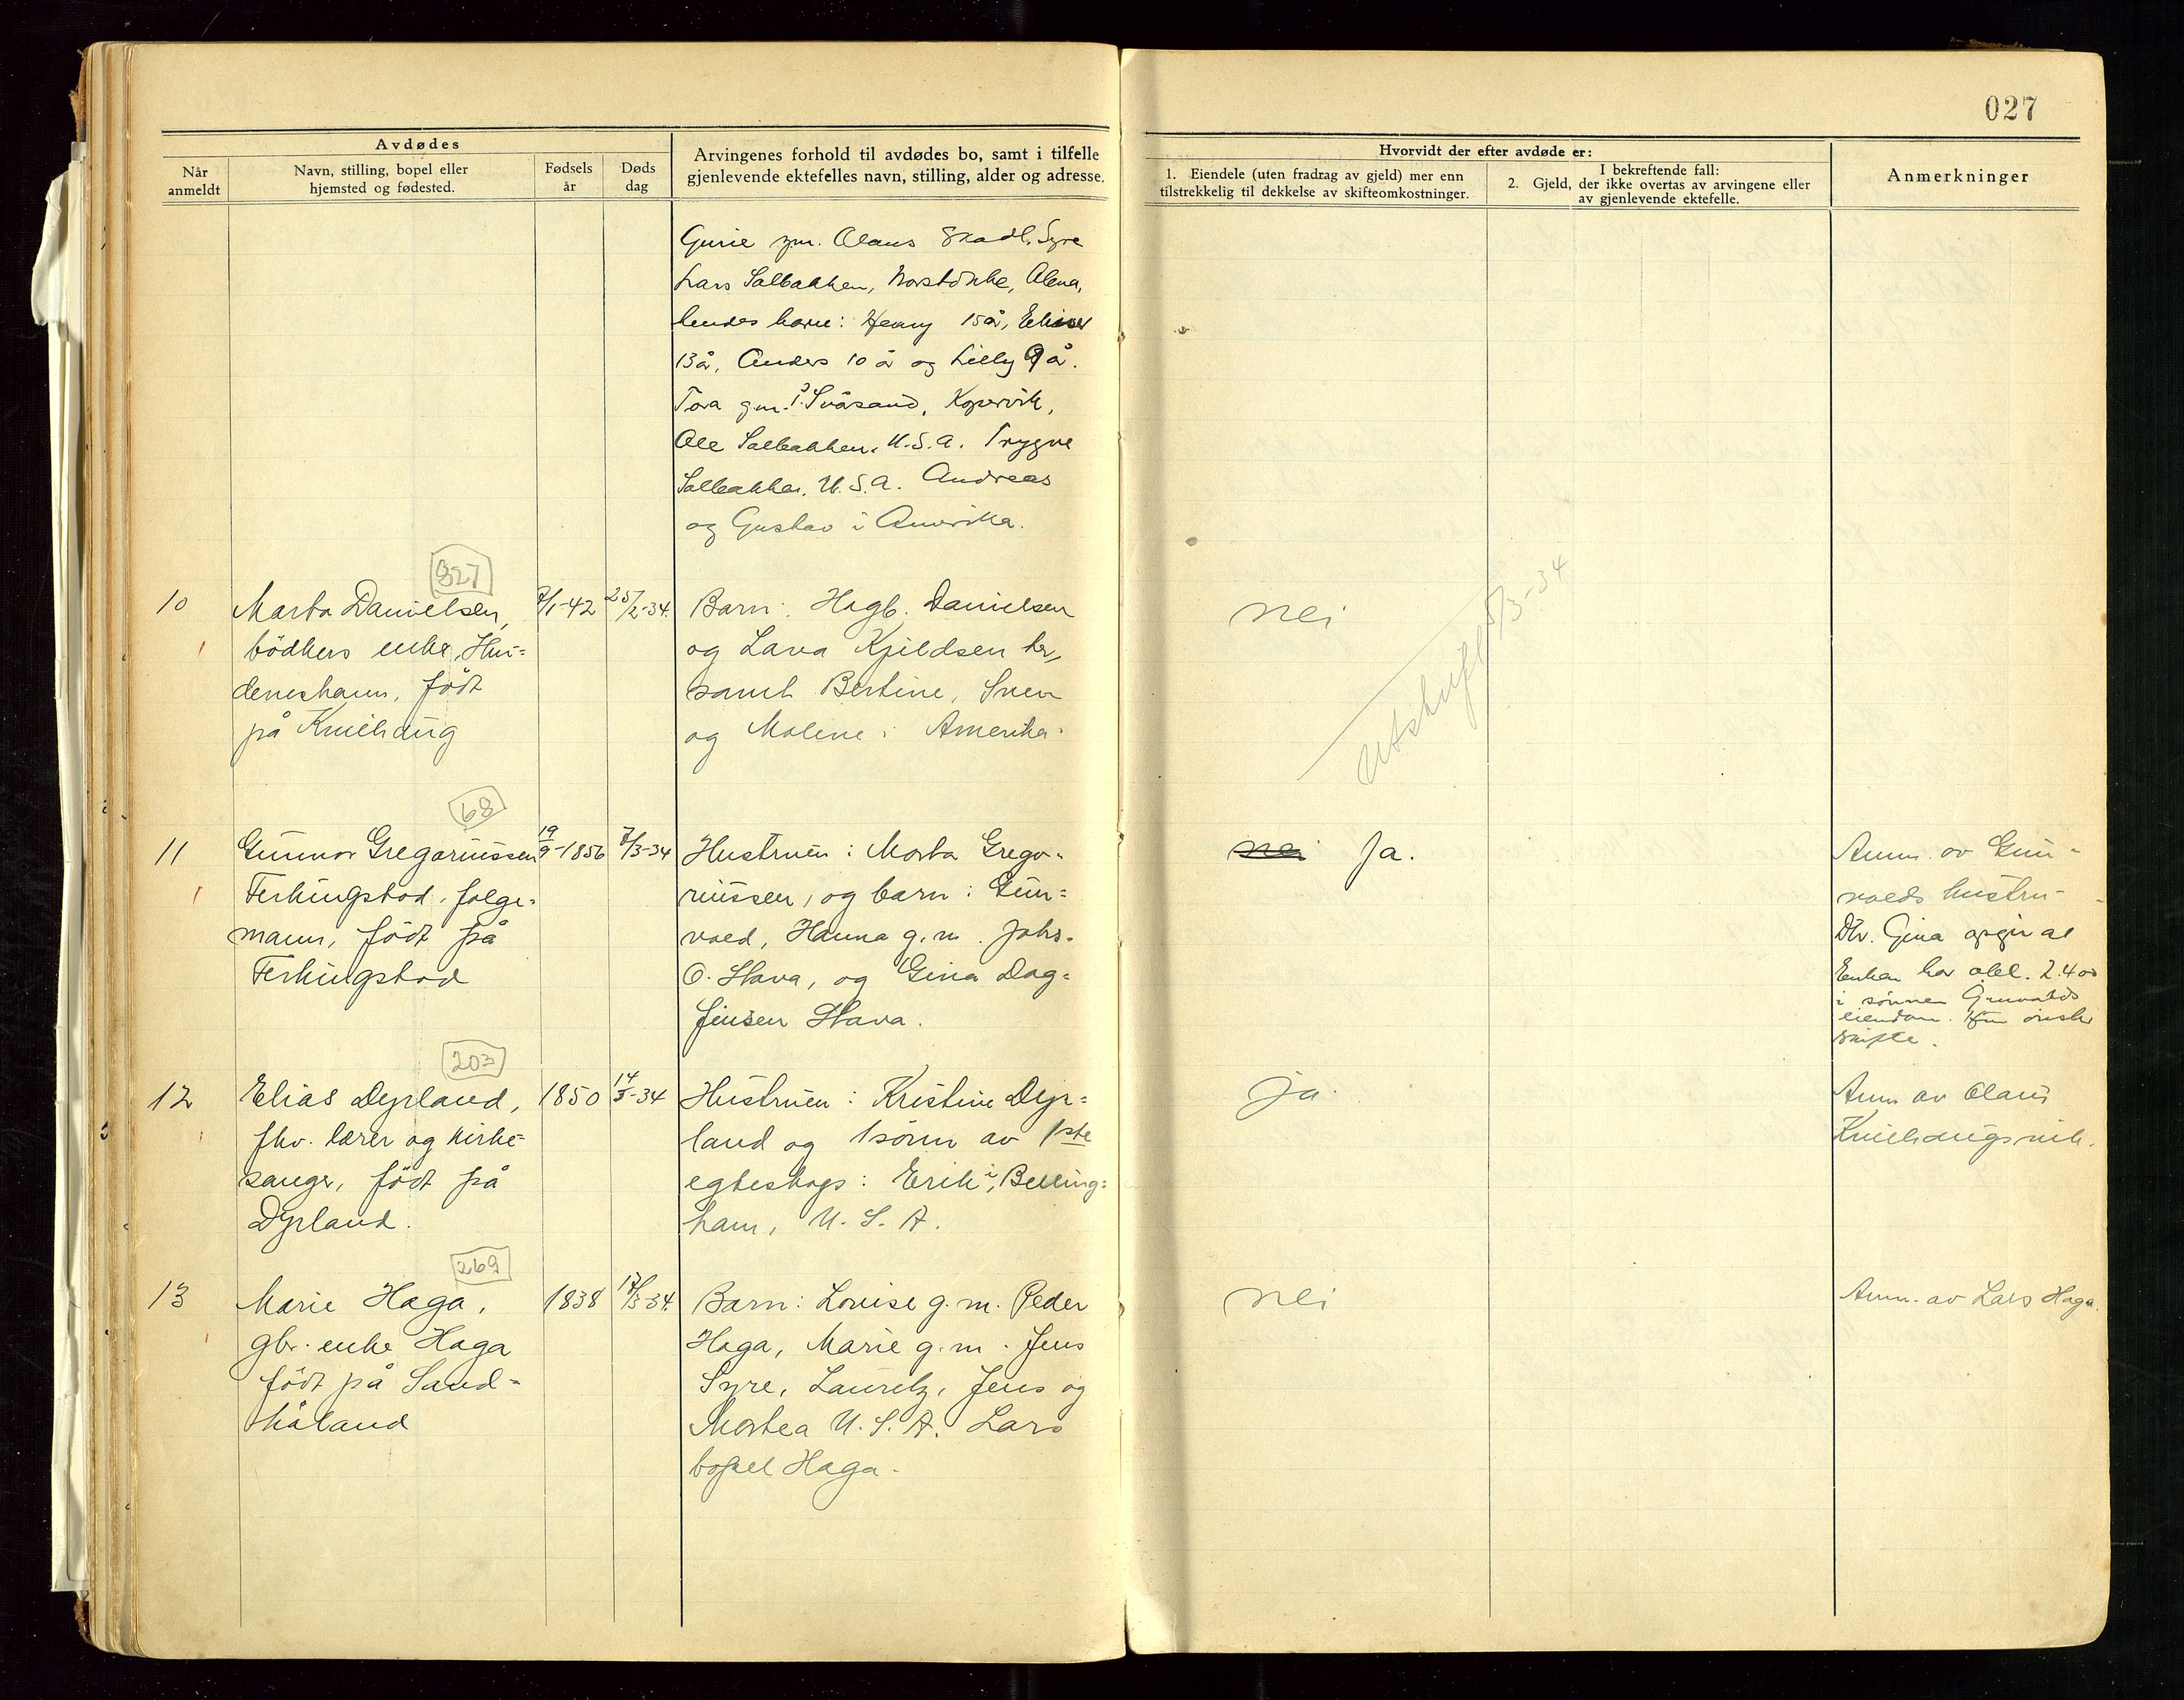 027
Avdødes
Når
anmeldt
Navn, stilling, bopel eller
hjemsted og fødested.
Fødsels
år
Døds
dag
Arvingenes forhold til avdødes bo, samt i tilfelle
gjenlevende ektefelles navn, stilling, alder og adresse.
Hvorvidt der efter avdøde er:
1. Eiendele (uten fradrag av gjeld) mer enn
tilstrekkelig til dekkelse av skifteomkostninger.
I bekreftende fall:
2. Gjeld, der ikke overtas av arvingene eller
av gjenlevende ektefelle.
Anmerkninger
Gurie gm. Olaus Skadl. Syre
Lars Solbakken, Alena,
hendes barn: Henny 15 å,
13 å, Anders 10 å og Lilly 9 å.
Tora g.m. Svåsand, Kopervik,
Ole Solbakken, U.S.A. Trygve
Solbakken, U.S.A. Andreas
og Gustav i Amerika.
327
10
Marta Danielsen,
bödkers enke, Hu=
deneshavn, födt
på Knithaug
2/1-42
25/2-34.
Barn: Hagb. Danielsen
og Lava Kjeldsen her,
samt Bertine, Sven
og Malene i Amerika.
nei
Utskrift 5/3-34
68
11
Gunnar Gregoriussen
Ferkingstad, folge=
mann, födt på
Ferkingstad
19/9-1856
7/3-34
Hustruen: Marta Grego=
riussen, og barn: Gun=
vald, Hanna g.m. Johs.
O. Stava, og Gina Dag=
finsen Stava.
nei Ja.
Anm. av Gun=
valds hustru
Dtr. Gina opgir at
Enken har obl. 2.400
i sönnen Gunvalds
eiendom. Hun önsker
skifte.
203
12
Elias Dyrland,
fhv. lærer og kirke=
sanger, födt på
Dyrland.
1850
14/3-34
Hustruen: Kristine Dyr=
land og 1 sönn av 1ste
egteskap: Erik i, Belling=
ham, U. S. A.
ja.
Anm av Olaus
Knithaugsvik.
269
13
Marie Haga,
gbr. enke Haga
födt på Sand=
håland
1838
17/3-34.
Barn: Lovise g.m. Peder
Haga, Marie g.m. Jens
Syre, Lauritz, Jens og
Martea U. S. A. Lars
bopel Haga.
nei
Anm. av Lars Haga.